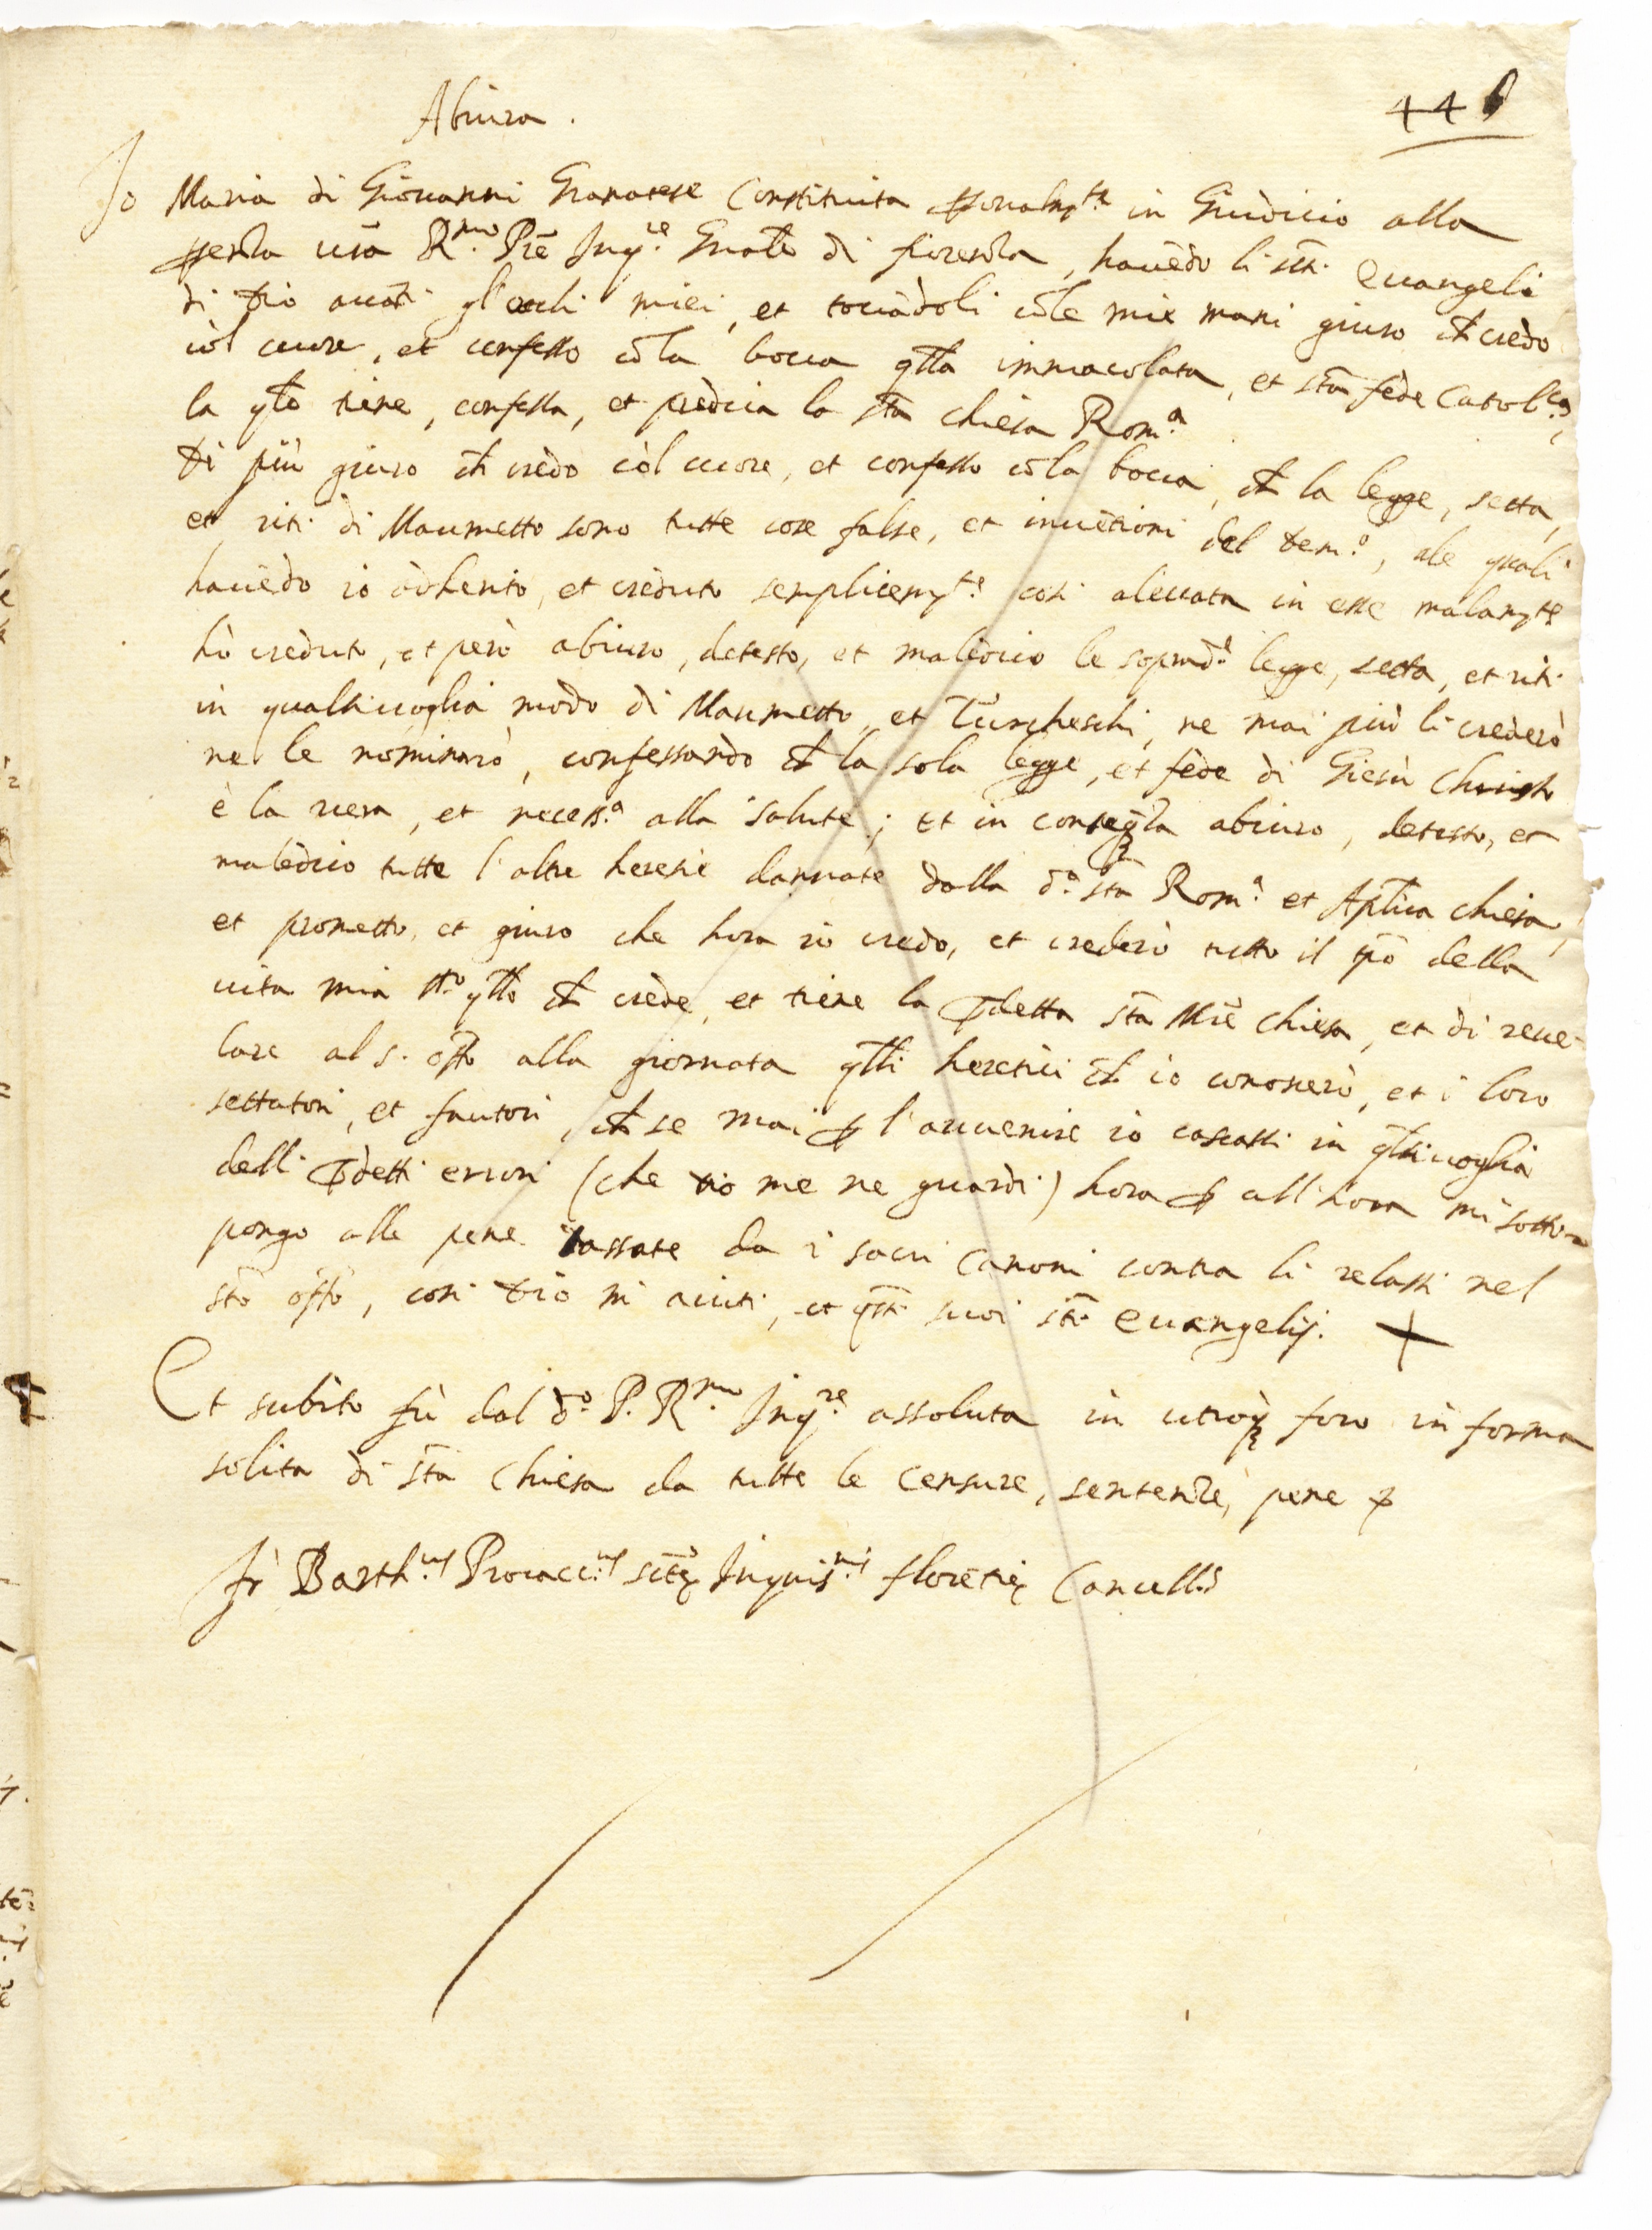 Abiura.
446
Io Maria di Giovanni Granatese Constituita psonalmte in Giudicio alla
psenza vrã R.mo Prẽ Inq.re Gñale di fiorenza, havẽdo li sti. Evangeli
di Dio avãti gl'occhi miei, et tocãdoli cõle mie mani giuro ch̃ credo
col cuore, et confesso cõ la bocca qlla immacolata, et stã fede Catol.ca,
la qle tiene, confessa, et predica la stã chiesa Rom.a
Di più giuro ch̃ credo col cuore, et confesso cõ la bocca, ch̃ la legge, setta,
et riti di Maumetto sono tutte cose false, et invẽtioni del Dem.o, ale quali
havẽdo io adherito, et creduto semplicemte. cosi alevata in esse malamte
hò creduto, et però abiuro, detesto, et maledico le sopradte. legge, setta, et riti
in qualsivoglia modo di Maumetto, et Turcheschi, ne mai più li crederò
ne le nominarò, confessando ch̃ la sola legge, et fede di Giesù Christo
è la vera, et necess.a alla salute; et in conseqza abiuro, detesto, et
maledico tutte l'altre heresie dannate dalla d.a stã Rom.a et Aplica chiesa,
et prometto, et giuro che hora io credo, et crederò tutto il tpõ della
vita mia tto. qllo ch̃ crede, et tiene la pdetta stã Mrẽ chiesa, et di reve-
lare al S. offo alla giornata qlli heretici ch̃ io conoscerò, et i loro
settatori, et fautori, ch̃ se mai p l'avvenire io cascassi in qlsivoglia
delli pdetti errori (che Dio me ne guardi) hora p all'hora mi sotto-
pongo alle pene tassate da i sacri Canoni contra li relassi nel
stõ offo, cosi Dio mi aiuti, et qsti suoi sti Evangelij. +
Et subito fù dal d.o P. R.mo Inq.re assoluta in utroq foro in forma
solita di stã Chiesa da tutte le censure, sentenze, pene
fr Barth.us Procacc.us sctę Inquis.nis florẽtię Cancell.s